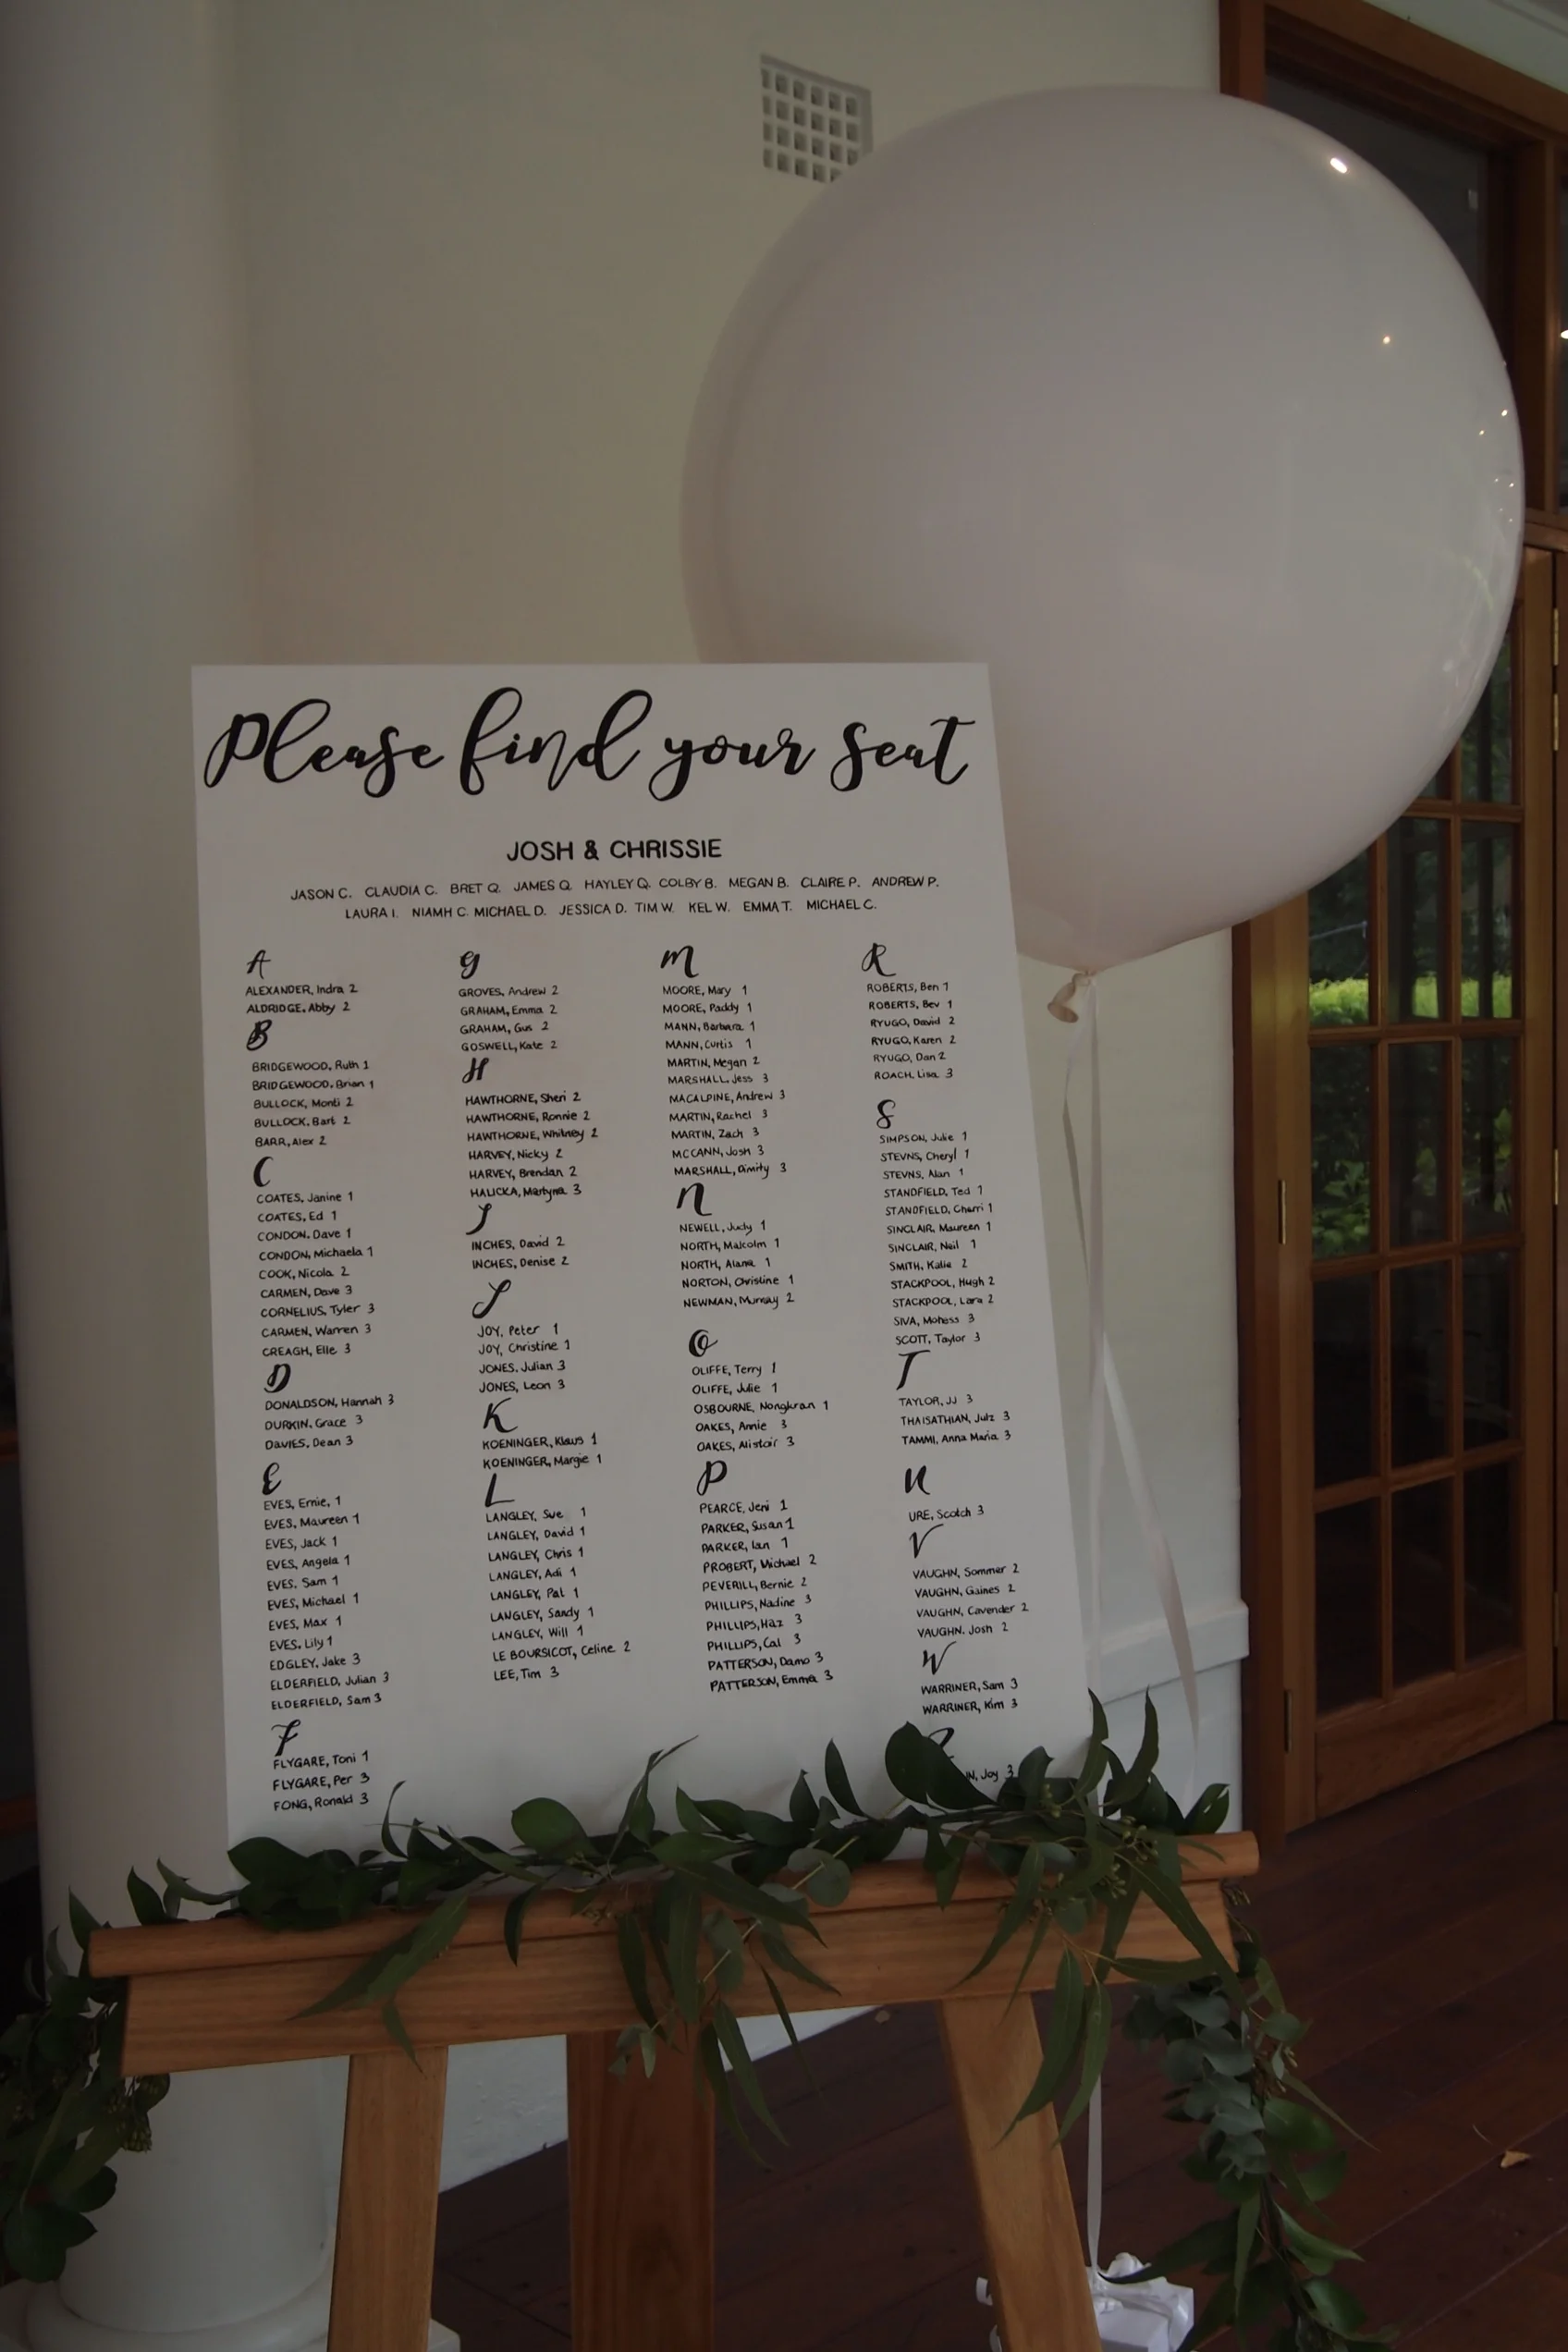 Please find your seat
JOSH & CHRISSIE
JASON C. CLAUDIA C. BRET Q. JAMES Q. HAYLEY Q. COLBY B. MEGAN B. CLAIRE P. ANDREW P.
LAURA I. NIAMH C. MICHAEL D. JESSICA D. TIM W. KEL W. EMMA T. MICHAEL C.
A
ALEXANDER, Indra 2
ALDRIDGE, Abby 2
B
BRIDGEWOOD, Ruth 1
BRIDGEWOOD, Brian 1
BULLOCK, Monti 2
BULLOCK, Bart 2
BARR, Alex 2
C
COATES, Janine 1
COATES, Ed 1
CONDON, Dave 1
CONDON, Michaela 1
COOK, Nicola 2
CARMEN, Dave 3
CORNELIUS, Tyler 3
CARMEN, Warren 3
CREAGH, Elle 3
D
DONALDSON, Hannah 3
DURKIN, Grace 3
DAVIES, Dean 3
E
EVES, Ernie, 1
EVES, Maureen 1
EVES, Jack 1
EVES, Angela 1
EVES, Sam 1
EVES, Michael 1
EVES, Max 1
EVES, Lily 1
EDGLEY, Jake 3
ELDERFIELD, Julian 3
ELDERFIELD, Sam 3
F
FLYGARE, Toni 1
FLYGARE, Per 3
FONG, Ronald 3
G
GROVES, Andrew 2
GRAHAM, Emma 2
GRAHAM, Gus 2
GOSWELL, Kate 2
H
HAWTHORNE, Sheri 2
HAWTHORNE, Ronnie 2
HAWTHORNE, Whitney 2
HARVEY, Nicky 2
HARVEY, Brendan 2
HALICKA, Martyna 3
I
INCHES, David 2
INCHES, Denise 2
J
JOY, Peter 1
JOY, Christine 1
JONES, Julian 3
JONES, Leon 3
K
KOENINGER, Klaus 1
KOENINGER, Margie 1
L
LANGLEY, Sue 1
LANGLEY, David 1
LANGLEY, Chris 1
LANGLEY, Adi 1
LANGLEY, Pat 1
LANGLEY, Sandy 1
LANGLEY, Will 1
LE BOURSICOT, Celine 2
LEE, Tim 3
M
MOORE, Mary 1
MOORE, Paddy 1
MANN, Barbara 1
MANN, Curtis 1
MARTIN, Megan 2
MARSHALL, Jess 3
MACALPINE, Andrew 3
MARTIN, Rachel 3
MARTIN, Zach 3
MCCANN, Josh 3
MARSHALL, Dimity 3
N
NEWELL, Judy 1
NORTH, Malcolm 1
NORTH, Alana 1
NORTON, Christine 1
NEWMAN, Murray 2
O
OLIFFE, Terry 1
OLIFFE, Julie 1
OSBOURNE, Nongkran 1
OAKES, Annie 3
OAKES, Alistair 3
P
PEARCE, Jeni 1
PARKER, Susan 1
PARKER, Ian 1
PROBERT, Michael 2
PEVERILL, Bernie 2
PHILLIPS, Nadine 3
PHILLIPS, Haz 3
PHILLIPS, Cal 3
PATTERSON, Damo 3
PATTERSON, Emma 3
R
ROBERTS, Ben 1
ROBERTS, Bev 1
RYUGO, David 2
RYUGO, Karen 2
RYUGO, Dan 2
ROACH, Lisa 3
S
SIMPSON, Julie 1
STEVNS, Cheryl 1
STEVNS, Alan 1
STANDFIELD, Ted 1
STANDFIELD, Cherri 1
SINCLAIR, Maureen 1
SINCLAIR, Neil 1
SMITH, Katie 2
STACKPOOL, Hugh 2
STACKPOOL, Lara 2
SIVA, Mohess 3
SCOTT, Taylor 3
T
TAYLOR, JJ 3
THAISATHIAN, Julz 3
TAMMI, Anna Maria 3
U
URE, Scotch 3
V
VAUGHN, Sommer 2
VAUGHN, Gaines 2
VAUGHN, Cavender 2
VAUGHN, Josh 2
W
WARRINER, Sam 3
WARRINER, Kim 3
Joy 3